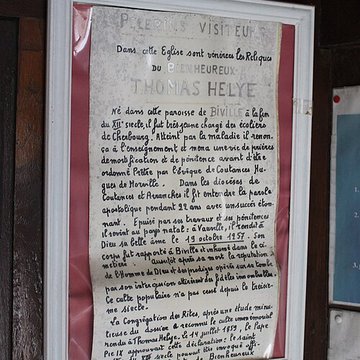 PELERINS VISITEURS
Dans cette Eglise sont vénérées les Reliques
DU BIENHEUREUX
THOMAS HELYE
Né dans cette paroisse de BIVILLE à la fin
du XIIe siècle, il fut très jeune chargé des écoliers
de Cherbourg. Atteint par la maladie il renon-
ça à l'enseignement et mena une vie de prières
de mortification et de pénitence avant d'être
ordonné Prêtre par l'Evêque de Coutances Hu-
gues de Morville. Dans les diocèses de
Coutances et Avranches il fit entendre la parole
apostolique pendant 22 ans avec un succès éton-
nant. Epuisé par ses travaux et ses pénitences
il revint au pays natal: à Vauville, il rendit à
Dieu sa belle âme le 19 octobre 1257. Son
corps fut rapporté à Biville et inhumé dans le ci-
metière. Aussitôt après sa mort la réputation
de l'Homme de Dieu et des prodiges opérés sur sa tombe
par son intercession attirèrent des fidèles innombrables.
Ce culte populaire n'a pas cessé depuis le treiziè-
me siècle.
La Congrégation des Rites, après une étude minu-
tieuse du dossier a reconnu le culte immémorial
rendu à Thomas Helye. Le 14 juillet 1859, le Pape
Pie IX approuvait cette déclaration: le saint
du XIIIe siècle pouvait être invoqué offi-
Bienheureux